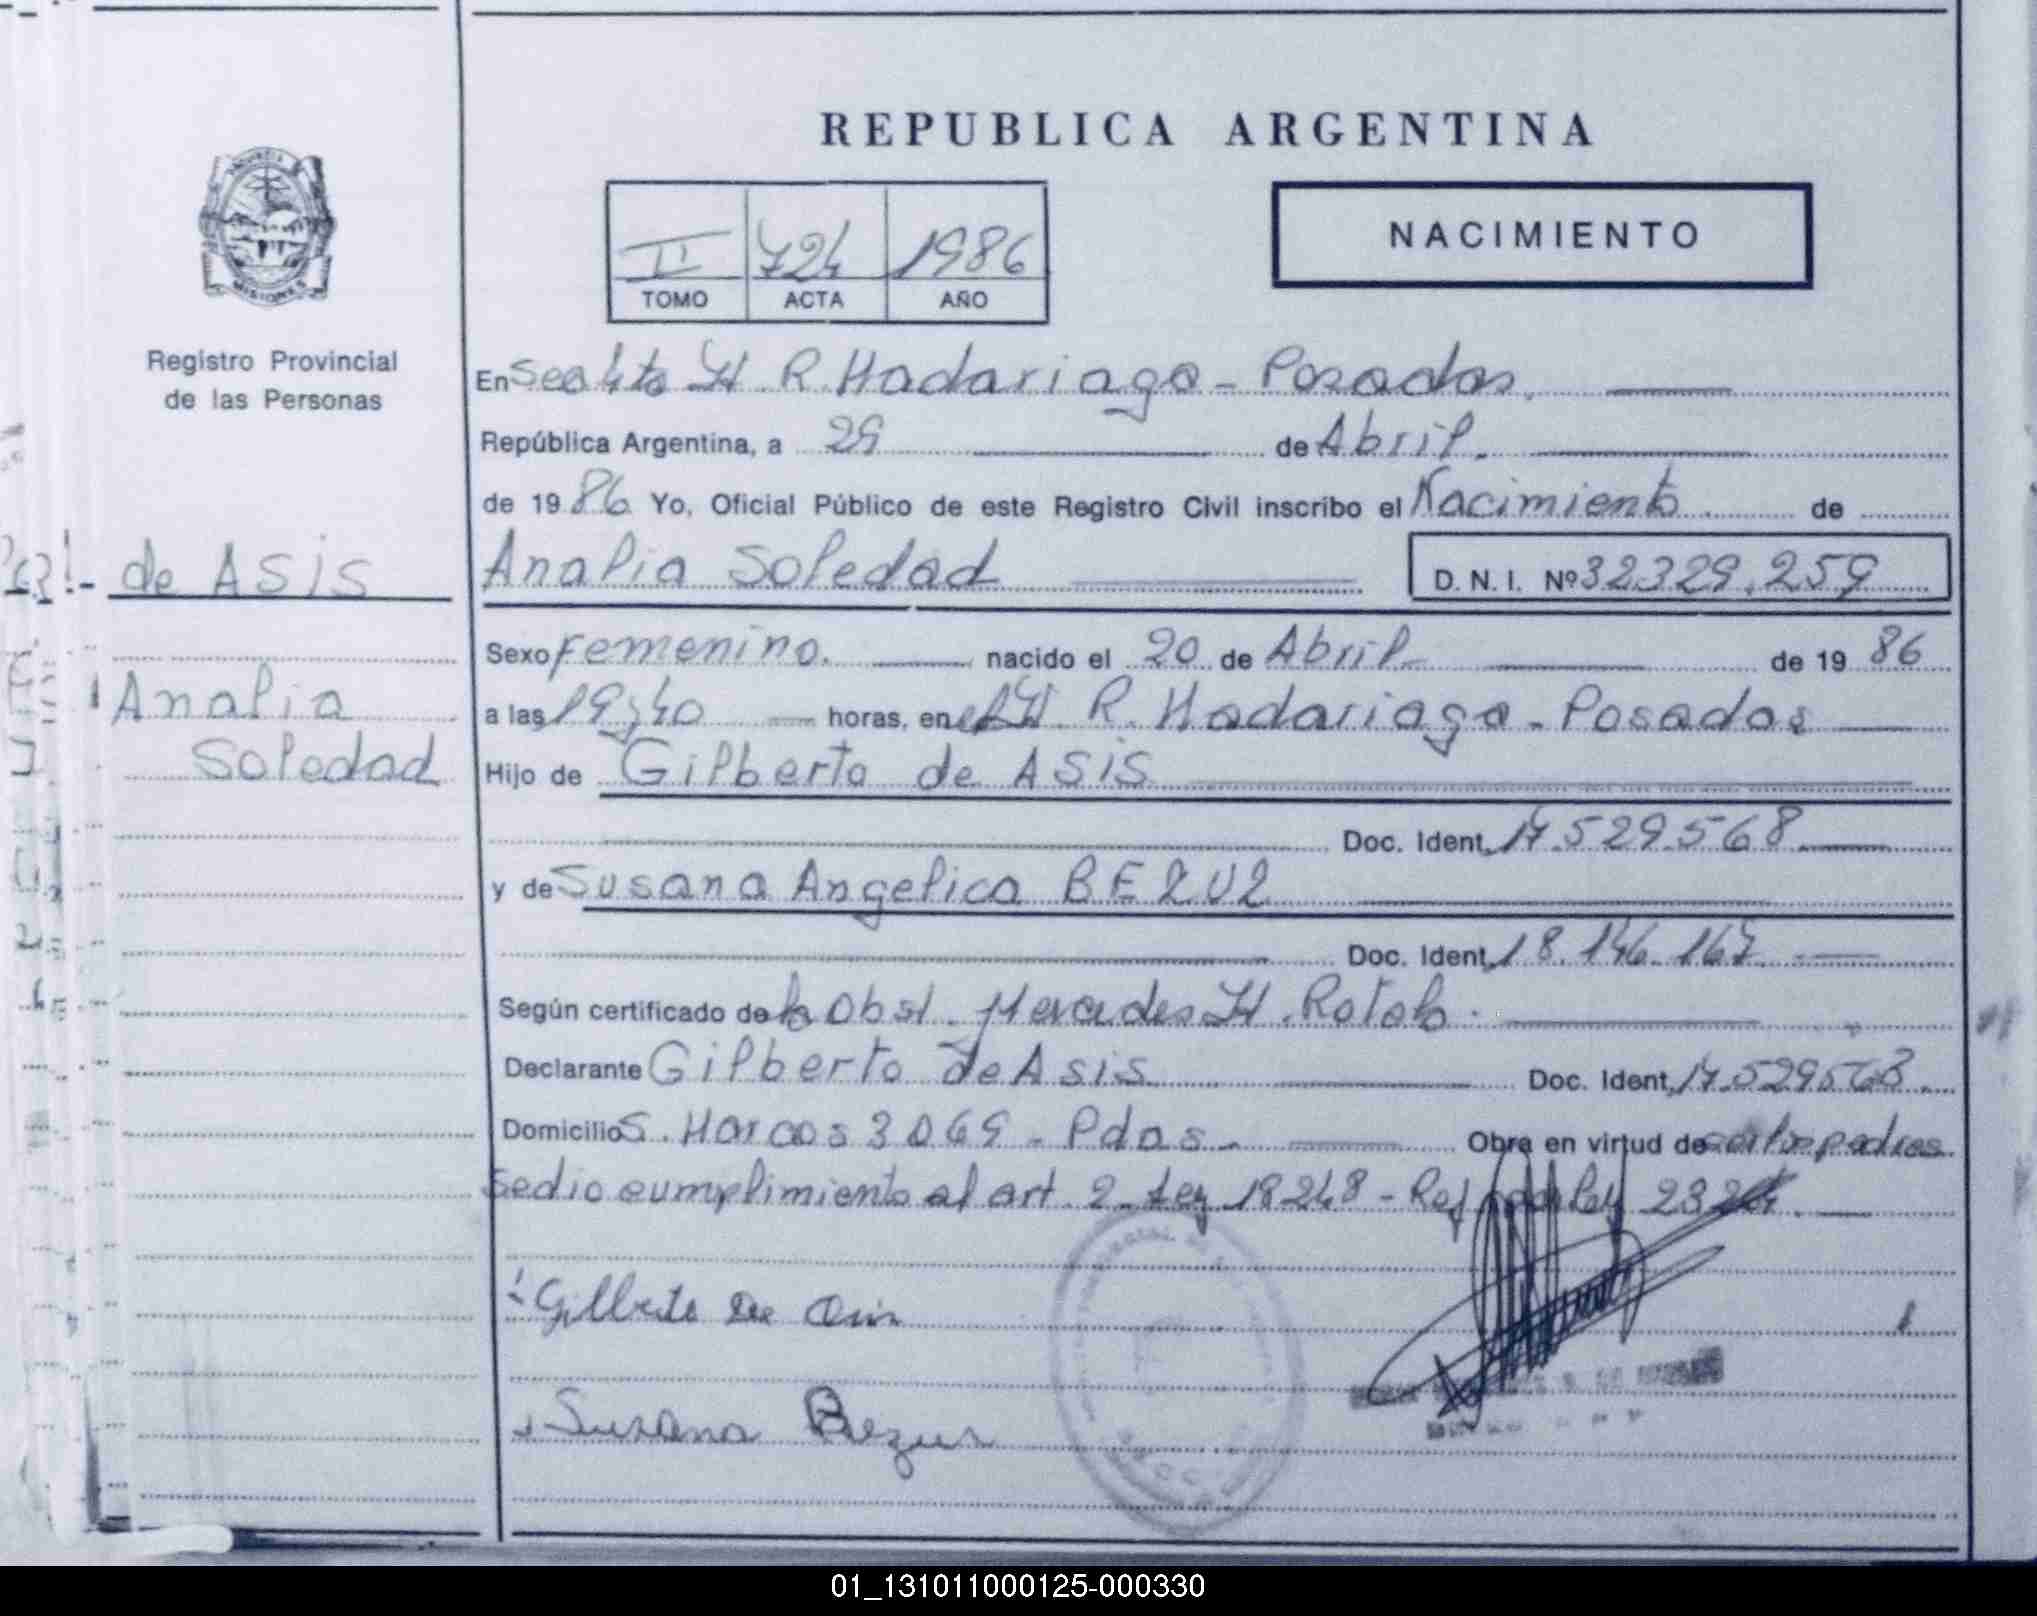 REPUBLICA ARGENTINA
NACIMIENTO
II 724 1986
TOMO ACTA AÑO
MISIONES
Registro Provincial
de las Personas
En R. Madariaga - Posadas.
República Argentina, a 29 de Abril.
de 1986 Yo, Oficial Público de este Registro Civil inscribo el Nacimiento de
de ASIS
Analia Soledad D. N. I. Nº 32329.259
Sexo Femenino. nacido el 20 de Abril de 1986
Analia
Soledad
a las 19,40 horas, en el H. R. Madariaga - Posadas
Hijo de Gilberto de ASIS
Doc. Ident. 17.529.568
y de Susana Angelica BEZUZ
Doc. Ident. 18.146.167
Según certificado de la Obst. Mercedes H. Rotolo.
Declarante Gilberto de Asis Doc. Ident. 17.529568.
Domicilio S. Marcos 3069 - Pdas. - Obra en virtud de padres
Se dio cumplimiento al art. 2 - Ley 18248 - Ley
Gilberto De Asis
Susana Bezus
01_131011000125-000330